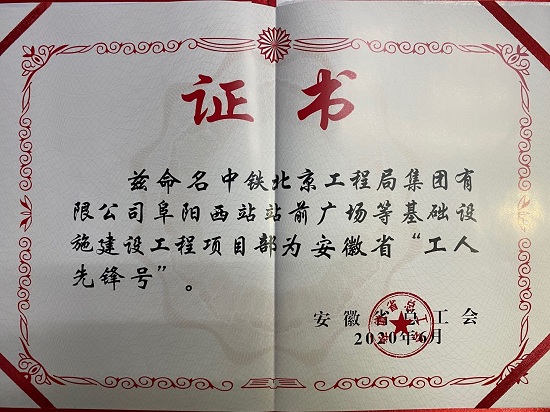 证书
兹命名中铁北京工程局集团有
限公司阜阳西站站前广场等基础设
施建设工程项目部为安徽省“工人
先锋号”。
安徽省总工会
2020年6月